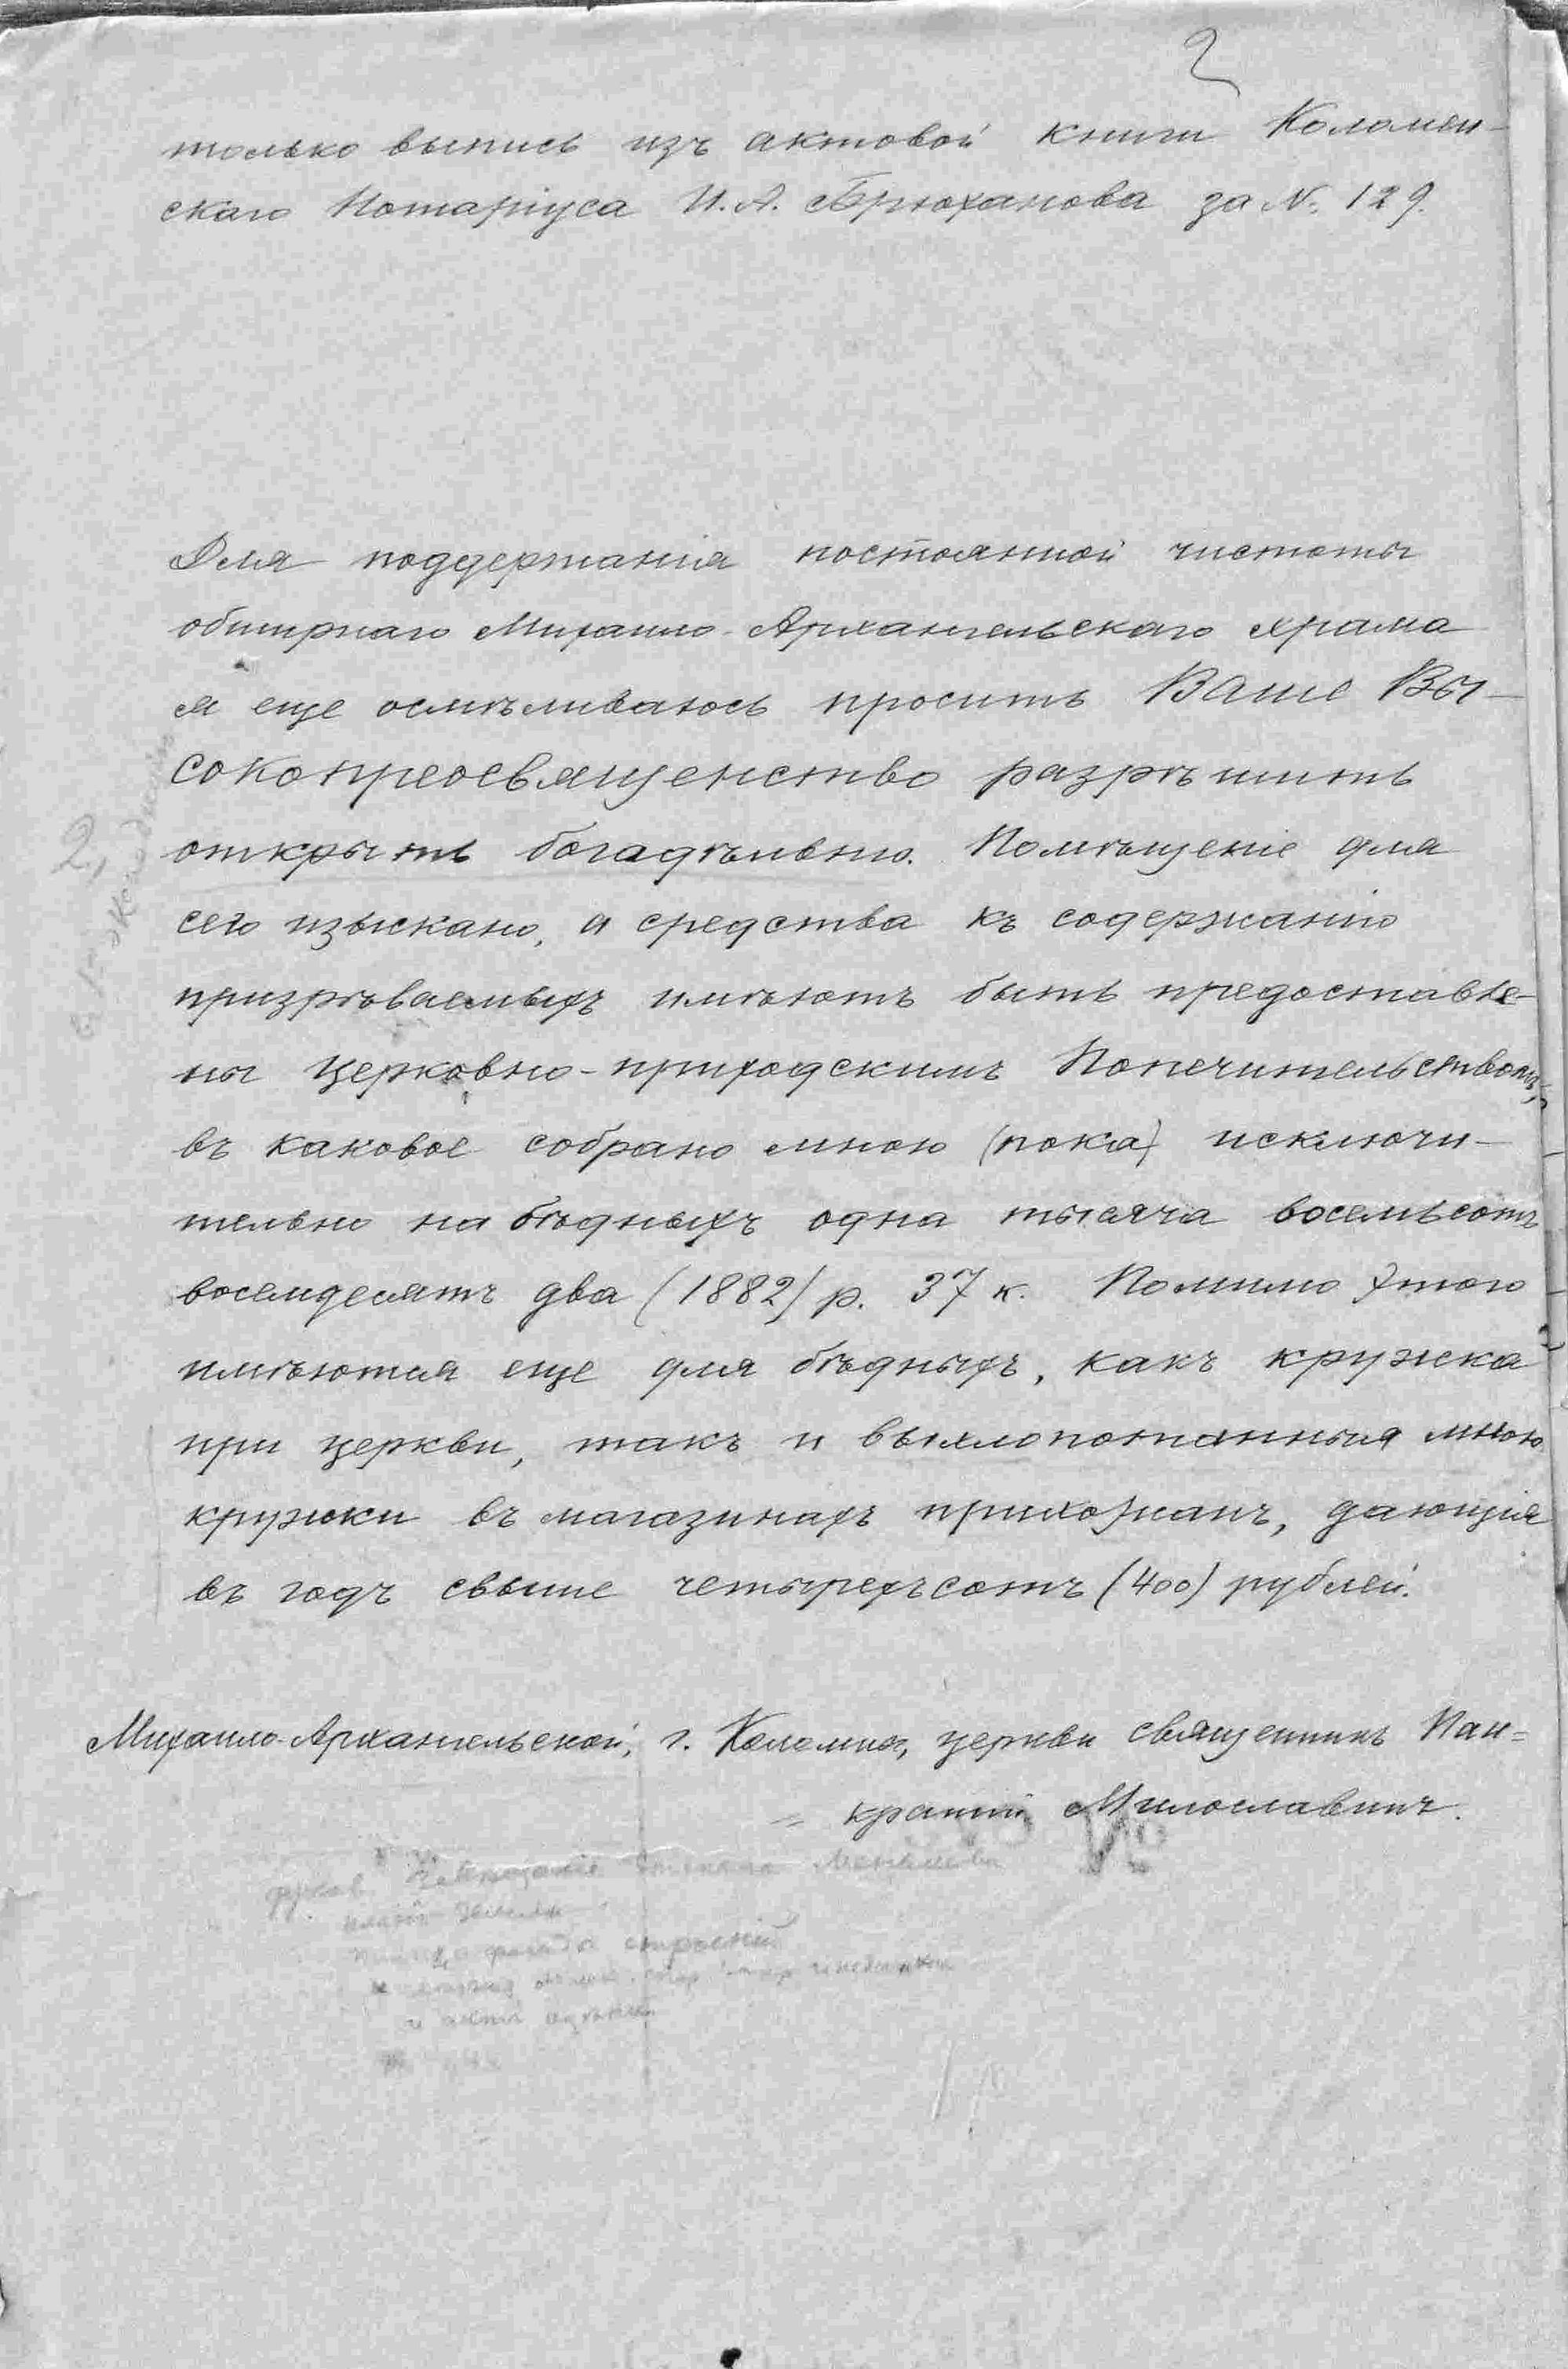 2
только выпись изъ актовой книги Коломен-
скаго Нотаріуса И. А. Брюханова за №. 129.
Для поддержанія постоянной чистоты
обширнаго Михаило-Архангельскаго храма
я еще осмѣливаюсь просить Ваше Вы-
сокопреосвященство разрѣшить
открыть богадѣльню. Помѣщеніе для
2,
сего изыскано, а средства къ содержанію
призрѣваемыхъ имѣютъ быть предоставле-
ны церковно-приходскимъ Попечительствомъ,
въ каковое собрано мною (пока) исключи-
тельно на бѣдныхъ одна тысяча восемьсотъ
восемдесятъ два (1882) р. 37 к. Помимо этого
имѣются еще для бѣдныхъ, какъ кружка
при церкви, такъ и выхлопотанныя мною
кружки въ магазинахъ прихожанъ, дающія
въ годъ свыше четырехъсотъ (400) рублей.
Михаило-Архангельской, г. Коломны, церкви священникъ Пан=
= кратій Милославинъ.
строеній